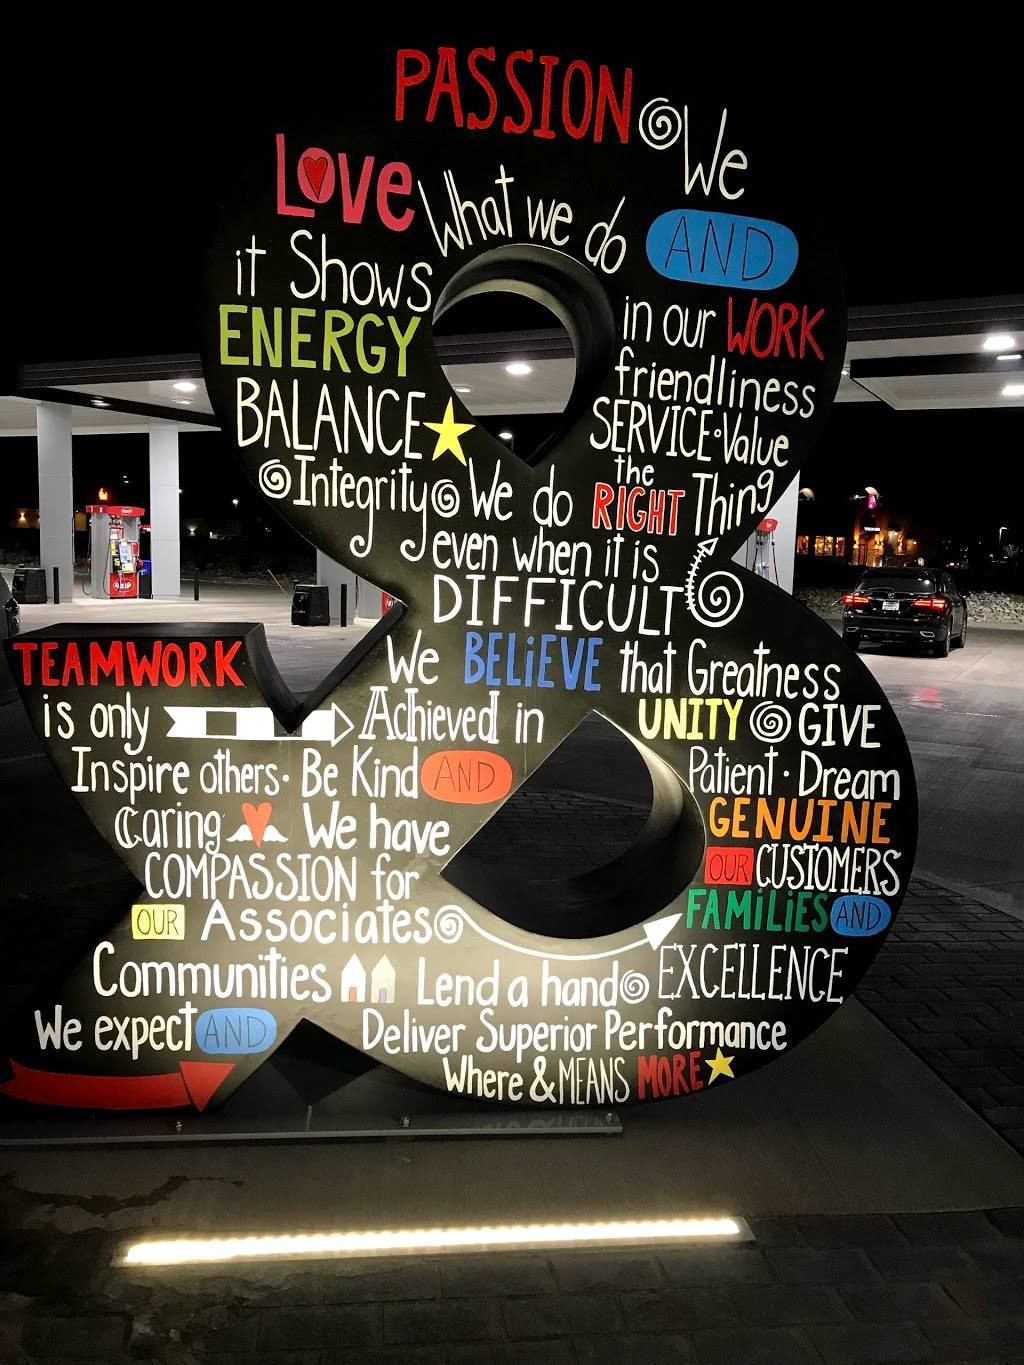 PASSION We
LOVE What we do AND
it Shows in our WORK
ENERGY friendliness
BALANCE SERVICE Value
Integrity We do the RIGHT Thing
even when it is
DIFFICULT
TEAMWORK We BELIEVE that Greatness
is only Achieved in UNITY GIVE
Inspire others · Be Kind AND Patient · Dream
Caring We have GENUINE
COMPASSION for OUR CUSTOMERS
OUR Associates FAMILIES AND
Communities Lend a hand EXCELLENCE
We expect AND Deliver Superior Performance
Where & MEANS MORE